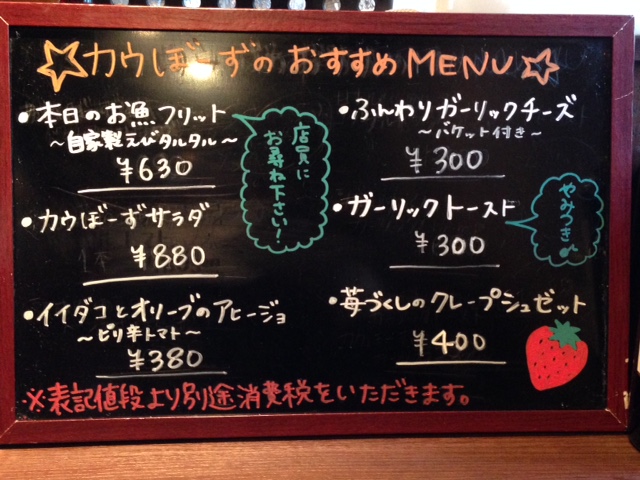 カウぼーずのおすすめMENU
・本日のお魚フリット
～自家製えびタルタル～
¥630
店員に
お尋ね下さい!
・カウぼーずサラダ
¥880
・イイダコとオリーブのアヒージョ
～ピリ辛トマト～
¥380
・ふんわりガーリックチーズ
～バケット付き～
¥300
・ガーリックトースト
¥300
やみつき♪
・苺づくしのクレープシュゼット
¥400
※表記値段より別途消費税をいただきます。